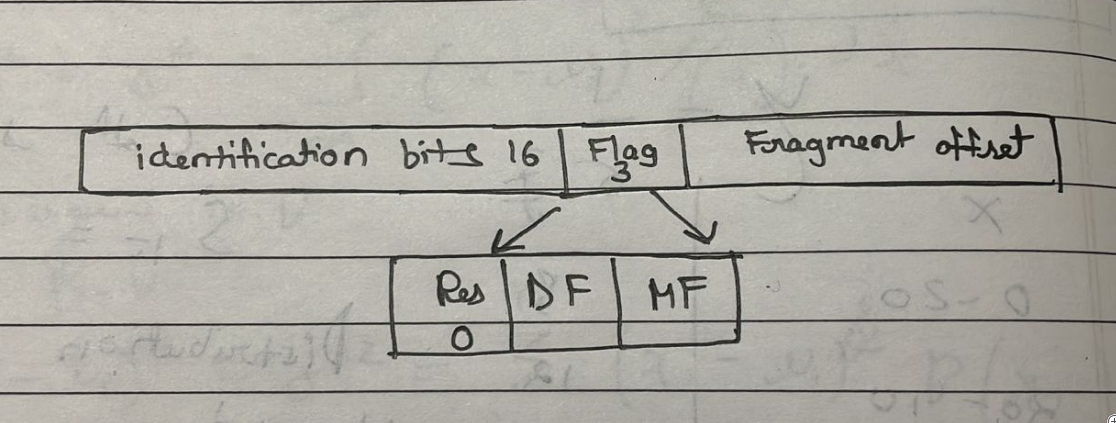 identification bits 16 Flag Fragment offset
3
Res DF MF
0